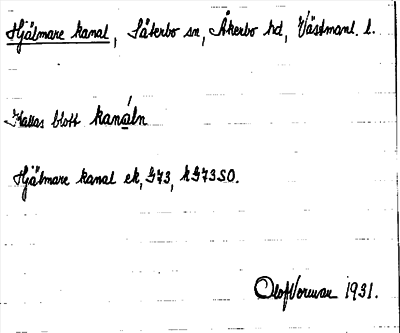 Hjälmare kanal, Säterbo sn, Åkerbo hd, Västmanl. l.
Kallas blott kanáln
Hjälmare kanal ek, G73, kG73SO.
Olof Vorman 1931.